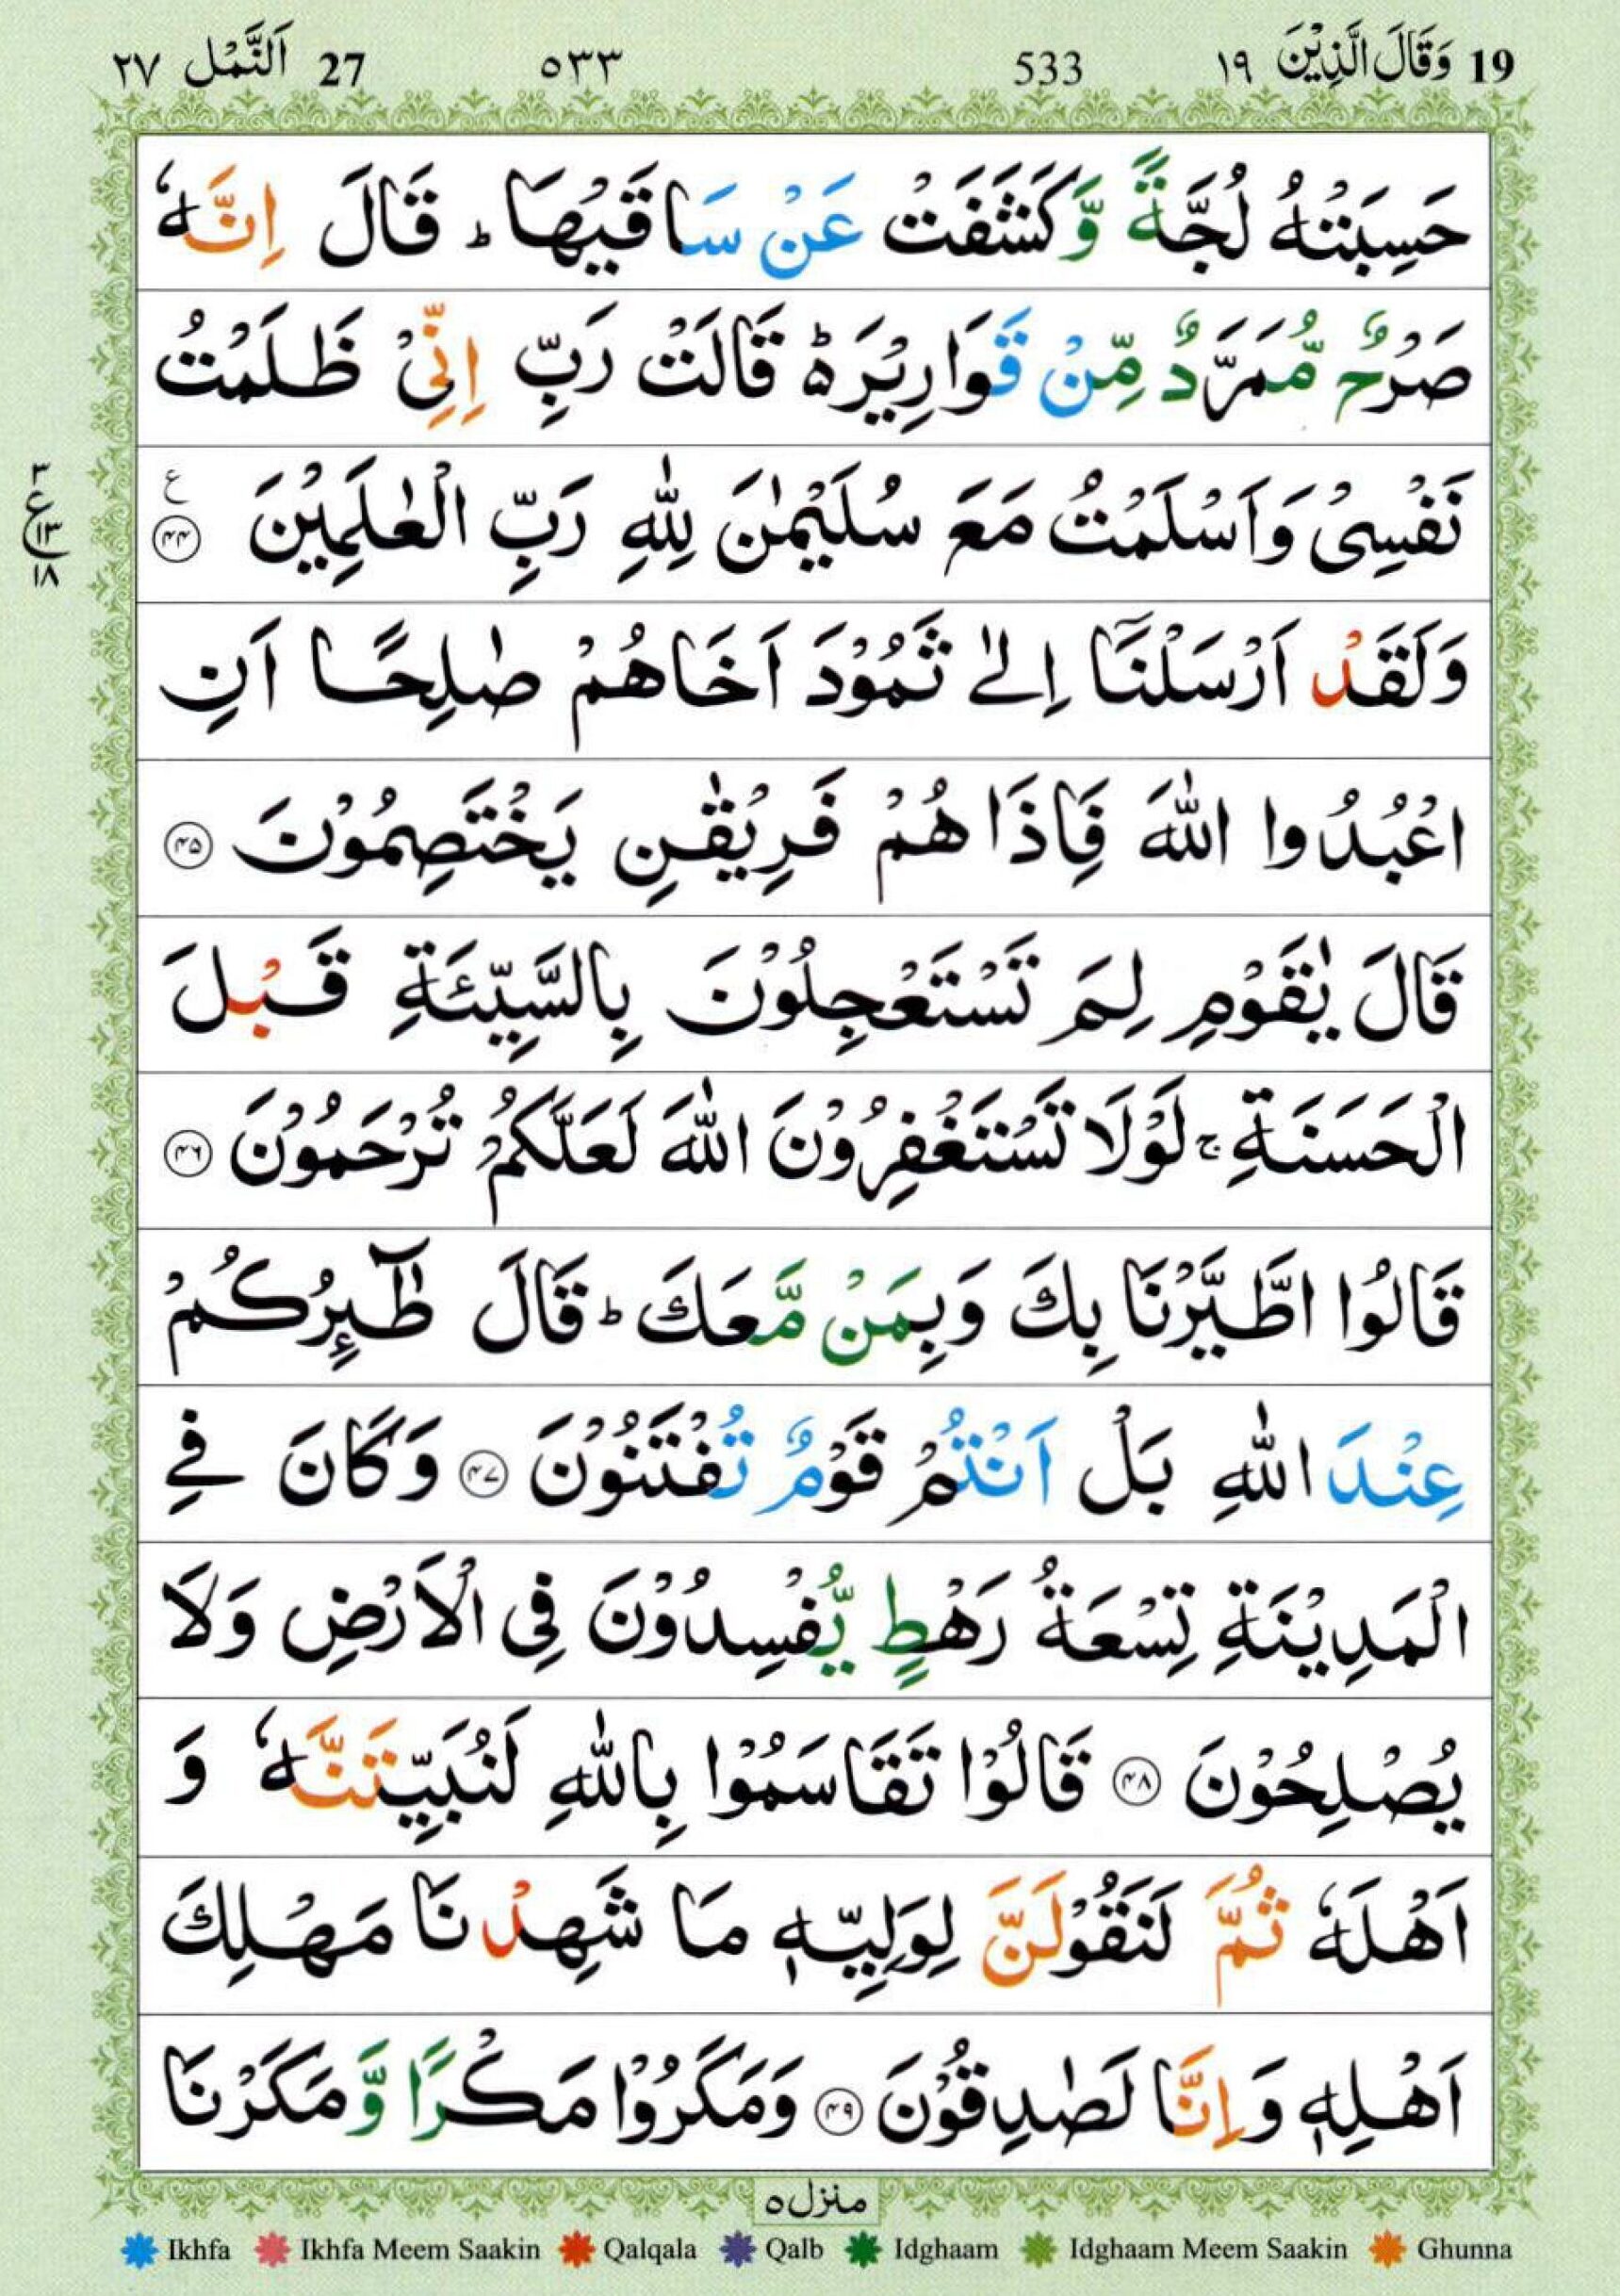 19 وَقَالَ الَّذِيْنَ ١٩ 533 ٥٣٣ 27 اَلنَّمْل ٢٧
حَسِبَتْهُ لُجَّةً وَّكَشَفَتْ عَنْ سَاقَيْهَا ؕ قَالَ اِنَّهٗ
صَرْحٌ مُّمَرَّدٌ مِّنْ قَوَارِيْرَ ۬ؕ قَالَتْ رَبِّ اِنِّىْ ظَلَمْتُ
نَفْسِىْ وَاَسْلَمْتُ مَعَ سُلَيْمٰنَ لِلّٰهِ رَبِّ الْعٰلَمِيْنَ ع ۴۴
٣ ع ١٣ ١٨
وَلَقَدْ اَرْسَلْنَاۤ اِلٰى ثَمُوْدَ اَخَاهُمْ صٰلِحًا اَنِ
اعْبُدُوا اللّٰهَ فَاِذَا هُمْ فَرِيْقٰنِ يَخْتَصِمُوْنَ ۴۵
قَالَ يٰقَوْمِ لِمَ تَسْتَعْجِلُوْنَ بِالسَّيِّئَةِ قَبْلَ
الْحَسَنَةِ ۚ لَوْلَا تَسْتَغْفِرُوْنَ اللّٰهَ لَعَلَّكُمْ تُرْحَمُوْنَ ۴۶
قَالُوا اطَّيَّرْنَا بِكَ وَبِمَنْ مَّعَكَ ؕ قَالَ طٰٓئِرُكُمْ
عِنْدَ اللّٰهِ بَلْ اَنْتُمْ قَوْمٌ تُفْتَنُوْنَ ۴۷ وَكَانَ فِى
الْمَدِيْنَةِ تِسْعَةُ رَهْطٍ يُّفْسِدُوْنَ فِى الْاَرْضِ وَلَا
يُصْلِحُوْنَ ۴۸ قَالُوْا تَقَاسَمُوْا بِاللّٰهِ لَنُبَيِّتَنَّهٗ وَ
اَهْلَهٗ ثُمَّ لَنَقُوْلَنَّ لِوَلِيِّهٖ مَا شَهِدْنَا مَهْلِكَ
اَهْلِهٖ وَاِنَّا لَصٰدِقُوْنَ ۴۹ وَمَكَرُوْا مَكْرًا وَّمَكَرْنَا
منزل ٥
Ikhfa Ikhfa Meem Saakin Qalqala Qalb Idghaam Idghaam Meem Saakin Ghunna